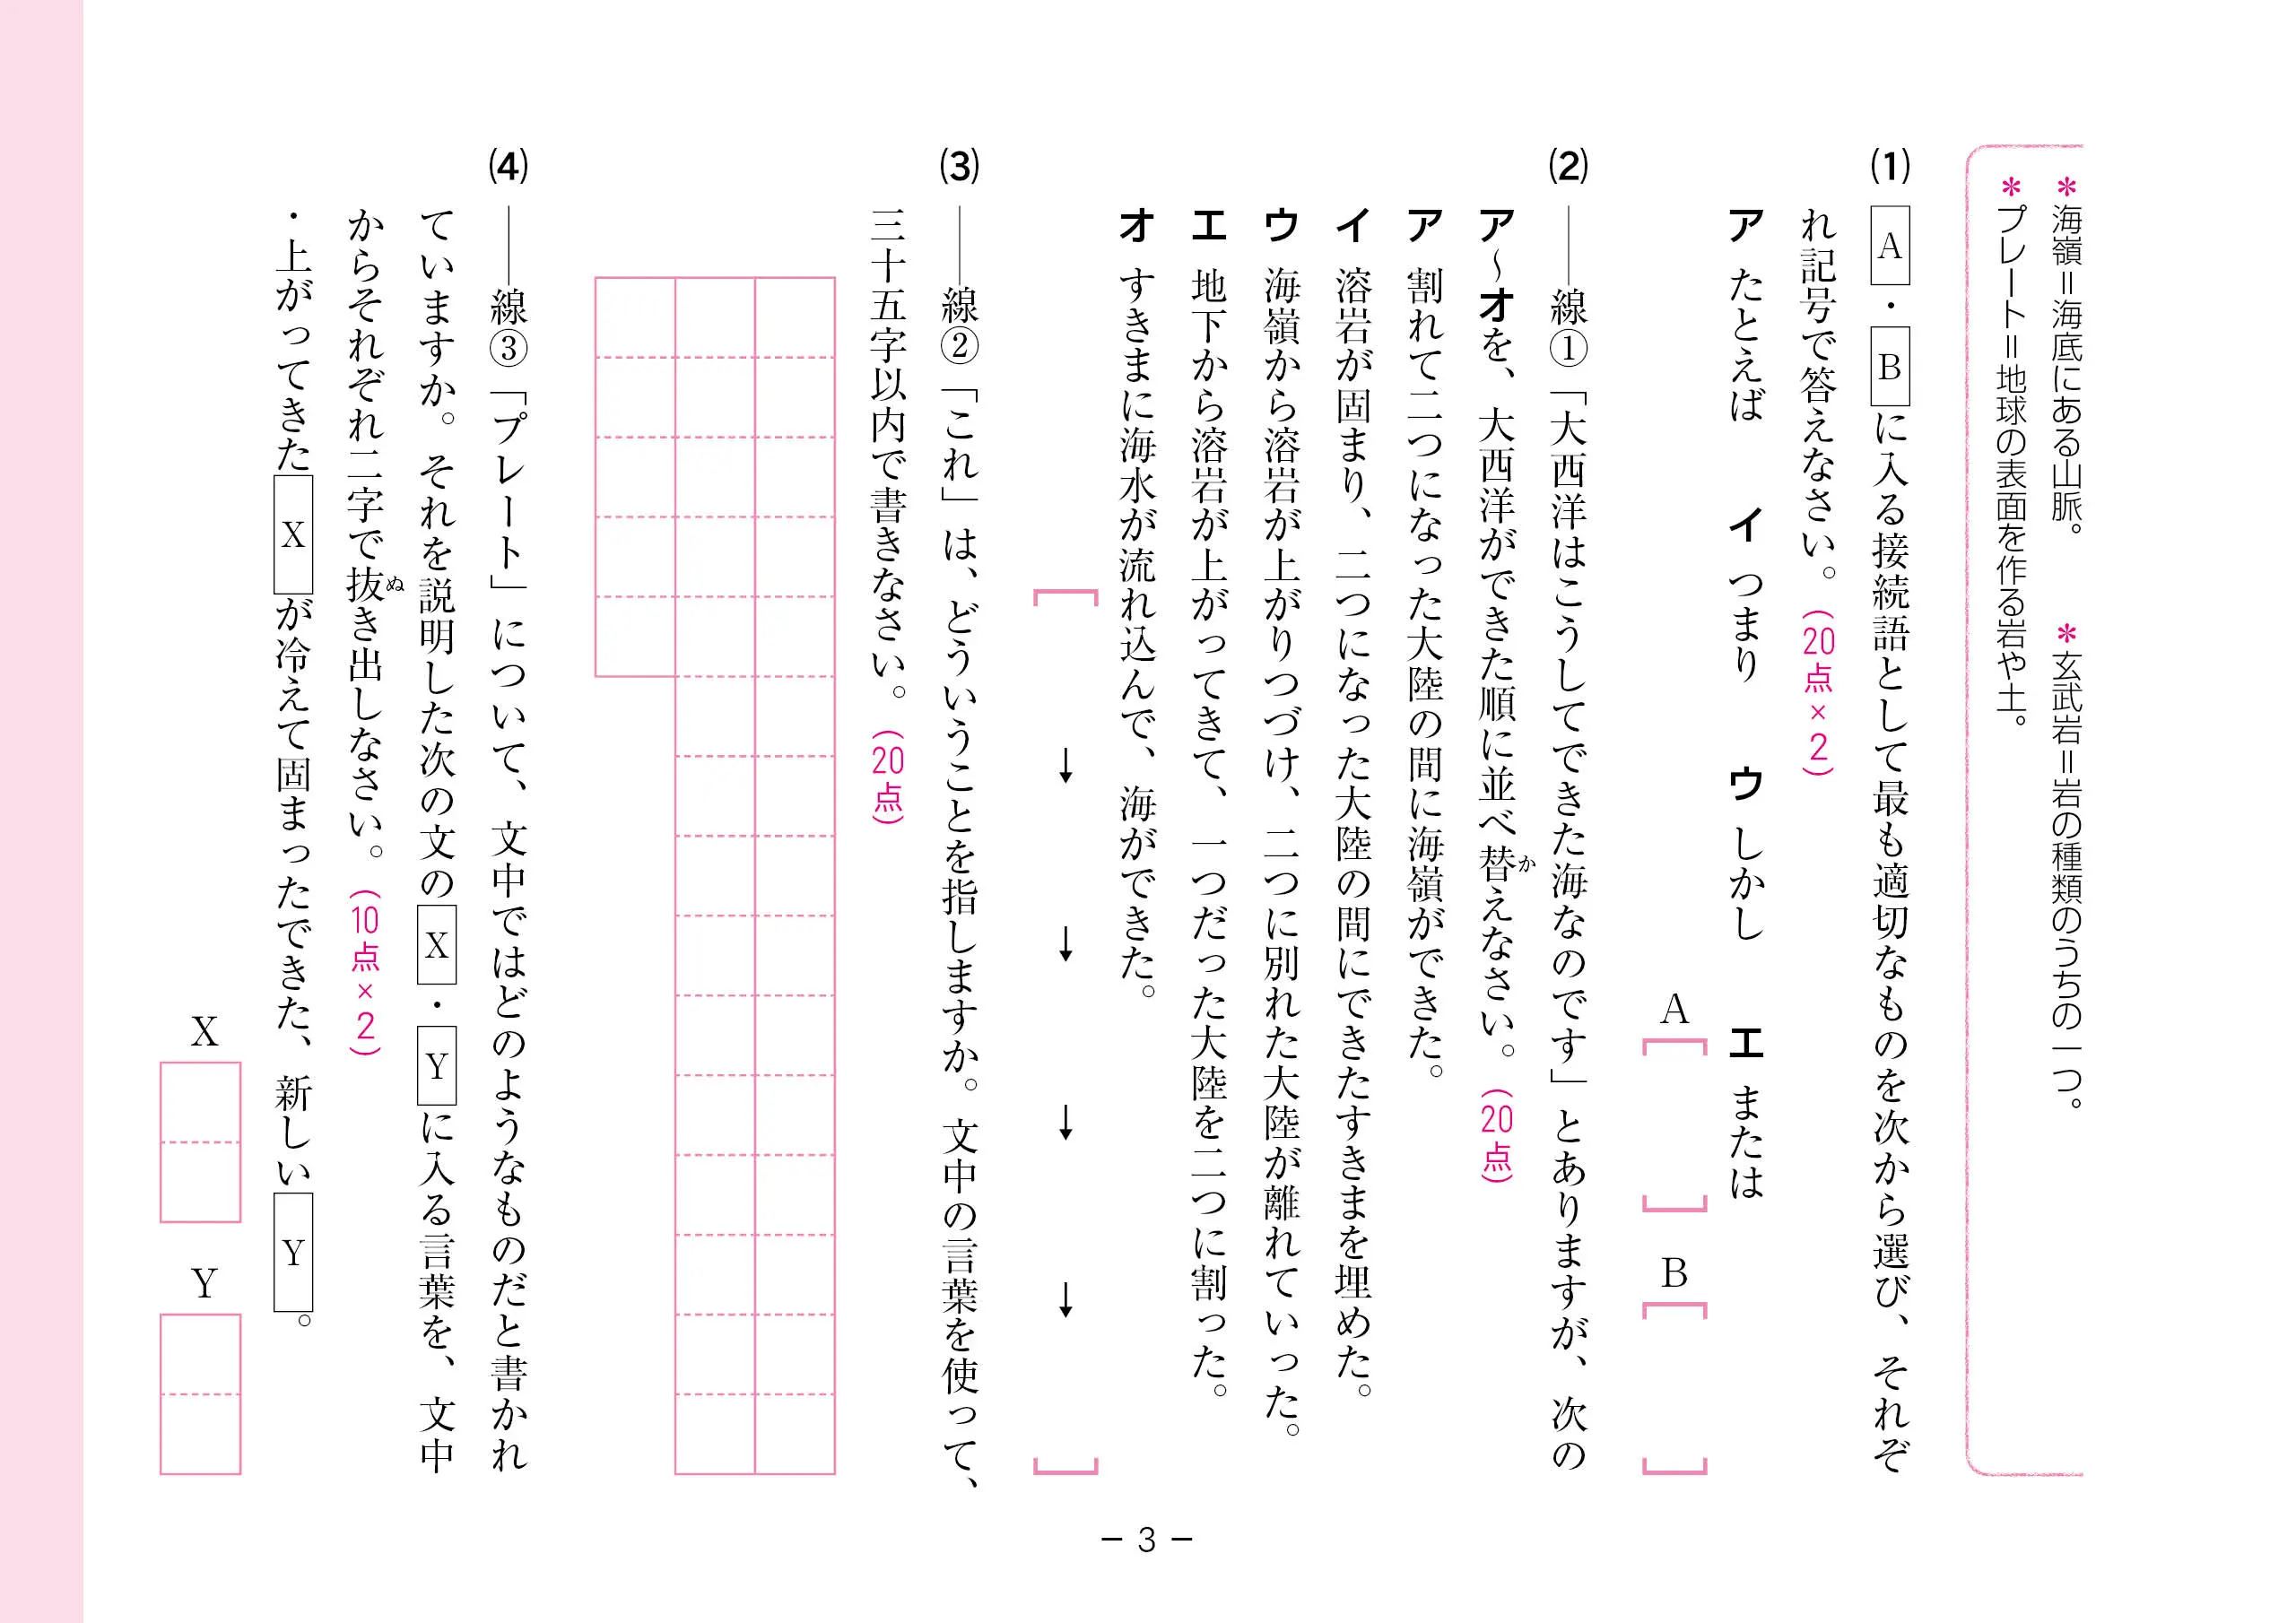 ＊海嶺＝海底にある山脈。　＊玄武岩＝岩の種類のうちの一つ。
＊プレート＝地球の表面を作る岩や土。
⑴ A・Bに入る接続語として最も適切なものを次から選び、それぞ
れ記号で答えなさい。（20点×2）
ア たとえば　イ つまり　ウ しかし　エ または
A［　　］B［　　］
⑵ ――線①「大西洋はこうしてできた海なのです」とありますが、次の
ア～オを、大西洋ができた順に並べ替えなさい。（20点）
か
ア 割れて二つになった大陸の間に海嶺ができた。
イ 溶岩が固まり、二つになった大陸の間にできたすきまを埋めた。
ウ 海嶺から溶岩が上がりつづけ、二つに別れた大陸が離れていった。
エ 地下から溶岩が上がってきて、一つだった大陸を二つに割った。
オ すきまに海水が流れ込んで、海ができた。
［　→　→　→　→　］
⑶ ――線②「これ」は、どういうことを指しますか。文中の言葉を使って、
三十五字以内で書きなさい。（20点）
⑷ ――線③「プレート」について、文中ではどのようなものだと書かれ
ていますか。それを説明した次の文のX・Yに入る言葉を、文中
からそれぞれ二字で抜き出しなさい。（10点×2）
ぬ
・上がってきたXが冷えて固まったできた、新しいY。
X　Y
－ 3 －